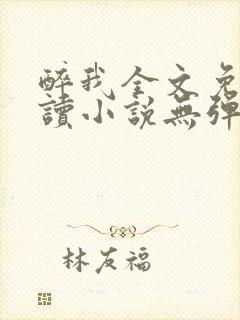 醉我全文免
讀小說無彈
林友福